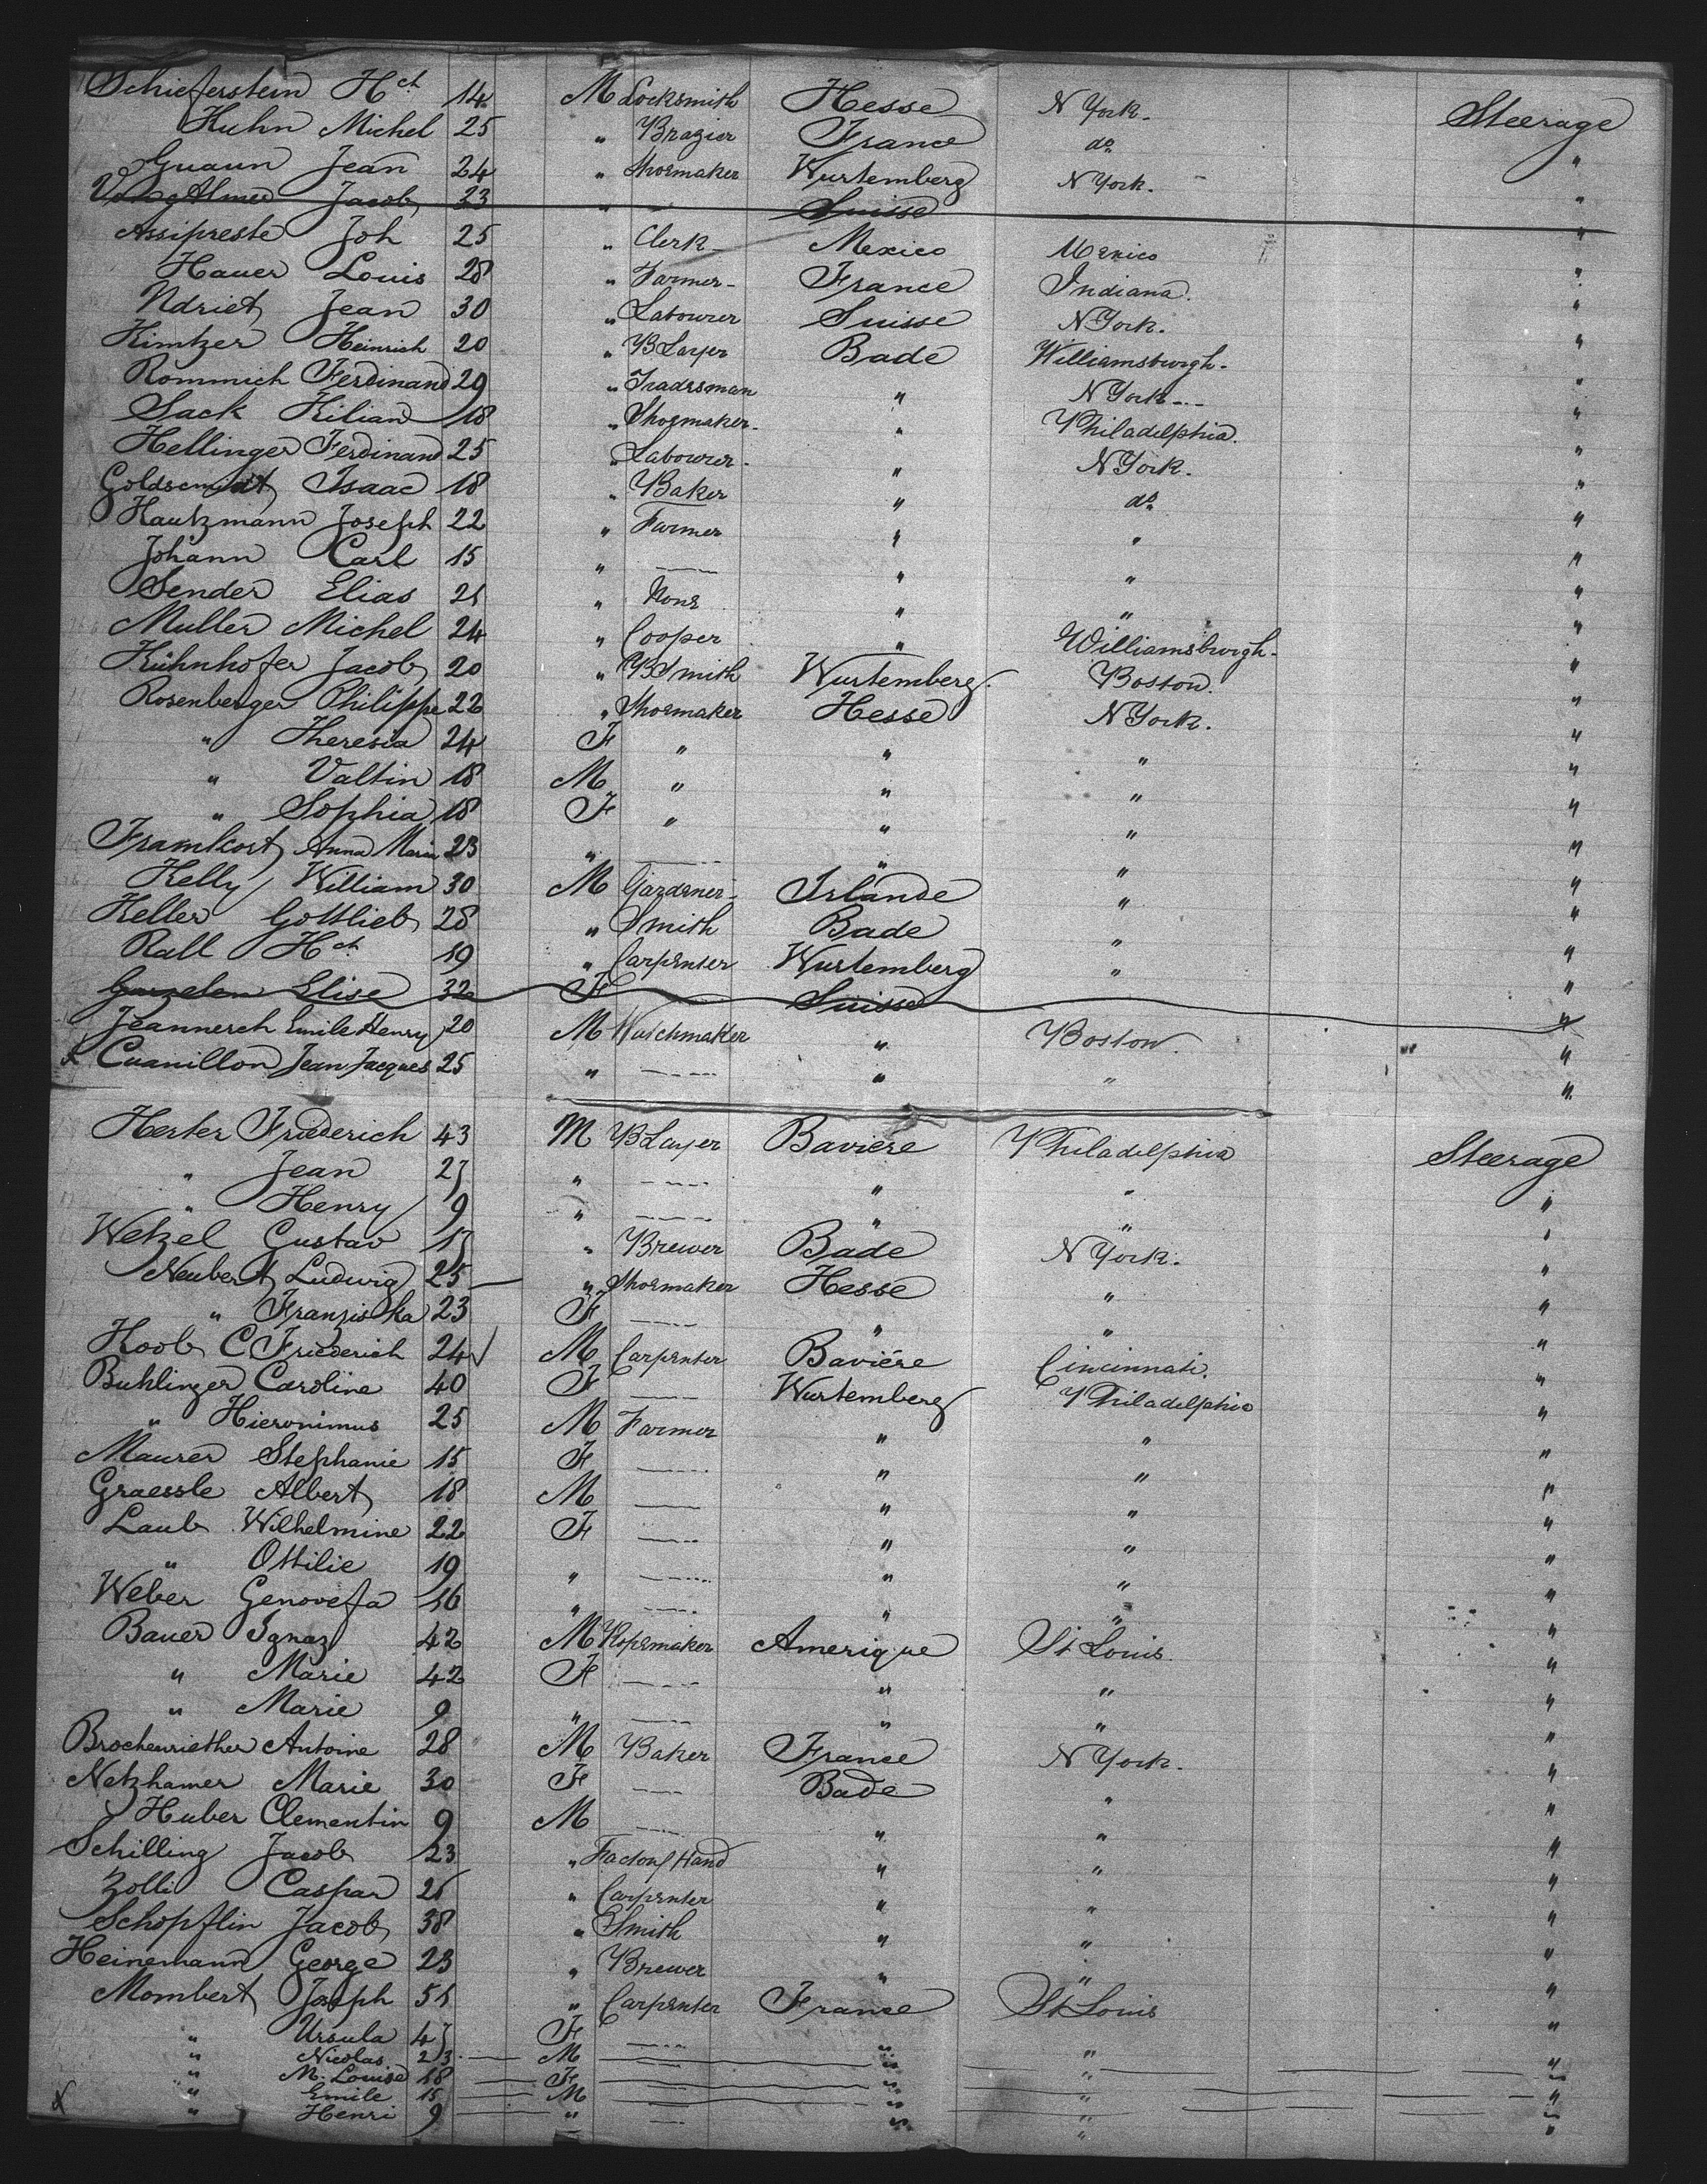 Schieferstein Hch 14 M Locksmith Hesse N York. Steerage
Huhn Michel 25 " Brazier France do "
Guaun Jean 24 " Shoemaker Wurtemberg N York. "
Jacob 23 " Suisse "
Assipreste Joh 25 " Clerk Mexico Mexico "
Hauer Louis 28 " Farmer France Indiana. "
Ndriet Jean 30 " Labourer Suisse N York. "
Kimtzer Heinrich 20 " B Layer Bade Williamsburgh. "
Rommich Ferdinand 29 " Tradesman " N York "
Sack Kilian 18 " Shoemaker " Philadelphia. "
Hellinger Ferdinand 25 " Labourer " N York. "
Goldscmidt Isaac 18 " Baker " do "
Hautzmann Joseph 22 " Farmer " " "
Johann Carl 15 " — " " "
Sender Elias 21 " None " " "
Muller Michel 24 " Cooper " Williamsburgh "
Kühnhofer Jacob 20 " B Smith Wurtemberg Boston. "
Rosenberger Philippe 22 " Shoemaker Hesse N York. "
" Theresia 24 F " " " "
" Valtin 18 M " " " "
" Sophia 18 F " " " "
Framkost Anna Maria 23 " — " " "
Kelly William 30 M Gardener Irlande " "
Keller Gottlieb 28 " Smith Bade " "
Rall Hch 19 " Carpenter Wurtemberg " "
Elise 32 F Suisse "
Jeannerch Emile Henry 20 M Watchmaker " Boston. "
x Cuanillon Jean Jacques 25 " — " " "
Herter Friederich 43 M B Layer Baviere Philadelphia Steerage
" Jean 27 " — " " "
" Henry 9 " — " " "
Wetzel Gustav 17 " Brewer Bade N York. "
Neubert Ludwig 25 " Shoemaker Hesse " "
" Franziska 23 F — " " "
Hoob C Friederich 24 M Carpenter Baviére Cincinnati. "
Buhlinger Caroline 40 F — Wurtemberg Philadelphia "
" Hieronimus 25 M Farmer " " "
Maurer Stephanie 15 F — " " "
Graessle Albert 18 M — " " "
Laub Wilhelmine 22 F — " " "
" Ottilie 19 " — " " "
Weber Genovefa 16 " — " " "
Bauer Ignaz 42 M Ropemaker Amerique St Louis. "
" Marie 42 F — " " "
" Marie 9 " — " " "
Brochenriether Antoine 28 M Baker France N York. "
Netzhamer Marie 30 F — Bade " "
Huber Clementin 9 M — " " "
Schilling Jacob 23 " Factory Hand " " "
Zolli Caspar 21 " Carpenter " " "
Schopflin Jacob 38 " Smith " " "
Heinemann George 23 " Brewer " " "
Mombert Joseph 51 " Carpenter France St Louis "
" Ursula 47 F — " " "
" Nicolas 23 M — " " "
" M. Louise 18 F — " " "
" Emile 15 M — " " "
x " Henri 9 " — " " "